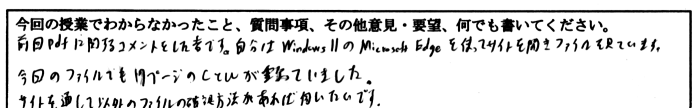 今回の授業でわからなかったこと、質問事項、その他意見・要望、何でも書いてください。
前回pdfに関するコメントをした者です。自分は Windows11の Microsoft Edge を使ってサイトを開きファイルを見ています。
今回のファイルでも 19ページの が重なっていました。
サイトを通して以外のファイルの確認方法があれば伺いたいです。